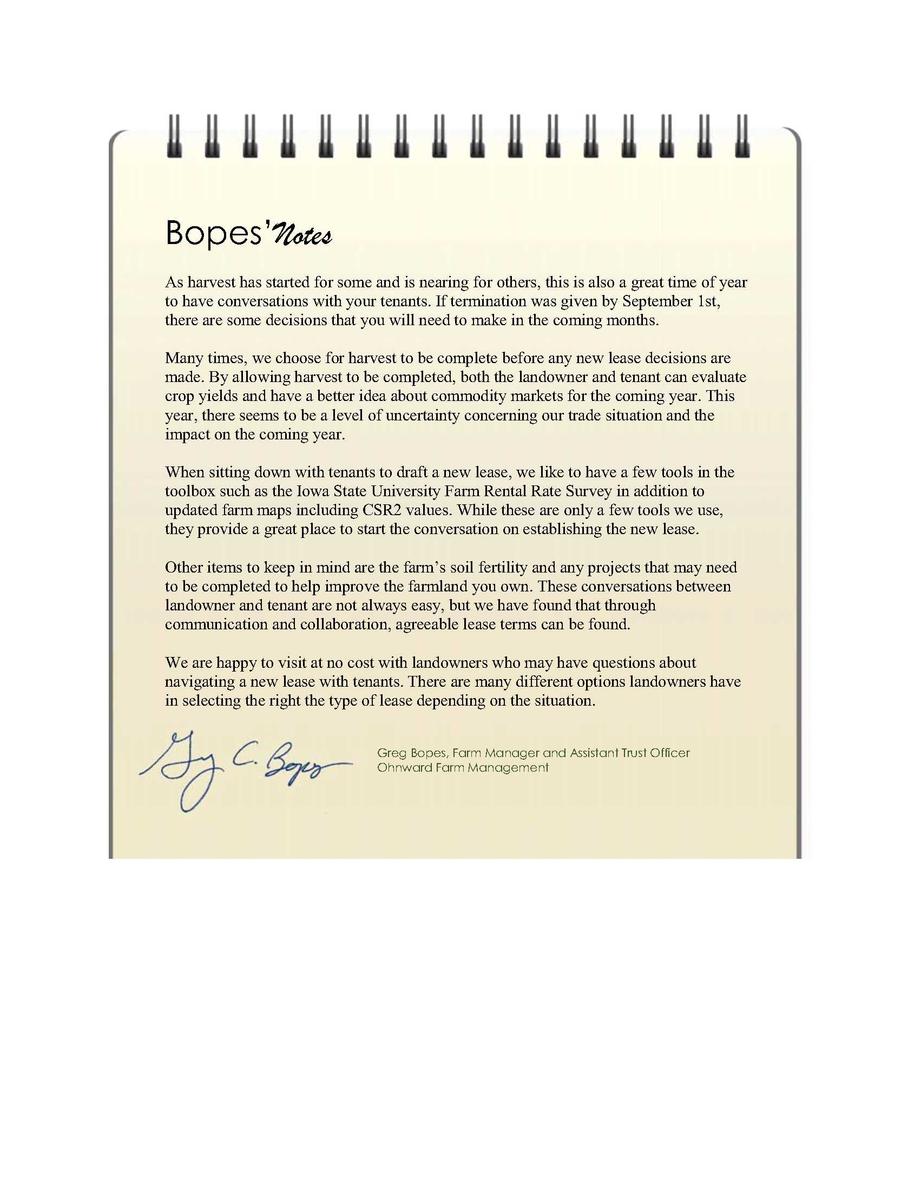 Bopes' Notes
As harvest has started for some and is nearing for others, this is also a great time of year
to have conversations with your tenants. If termination was given by September 1st,
there are some decisions that you will need to make in the coming months.
Many times, we choose for harvest to be complete before any new lease decisions are
made. By allowing harvest to be completed, both the landowner and tenant can evaluate
crop yields and have a better idea about commodity markets for the coming year. This
year, there seems to be a level of uncertainty concerning our trade situation and the
impact on the coming year.
When sitting down with tenants to draft a new lease, we like to have a few tools in the
toolbox such as the Iowa State University Farm Rental Rate Survey in addition to
updated farm maps including CSR2 values. While these are only a few tools we use,
they provide a great place to start the conversation on establishing the new lease.
Other items to keep in mind are the farm's soil fertility and any projects that may need
to be completed to help improve the farmland you own. These conversations between
landowner and tenant are not always easy, but we have found that through
communication and collaboration, agreeable lease terms can be found.
We are happy to visit at no cost with landowners who may have questions about
navigating a new lease with tenants. There are many different options landowners have
in selecting the right the type of lease depending on the situation.
Greg C. Bopes
Greg Bopes, Farm Manager and Assistant Trust Officer
Ohnward Farm Management